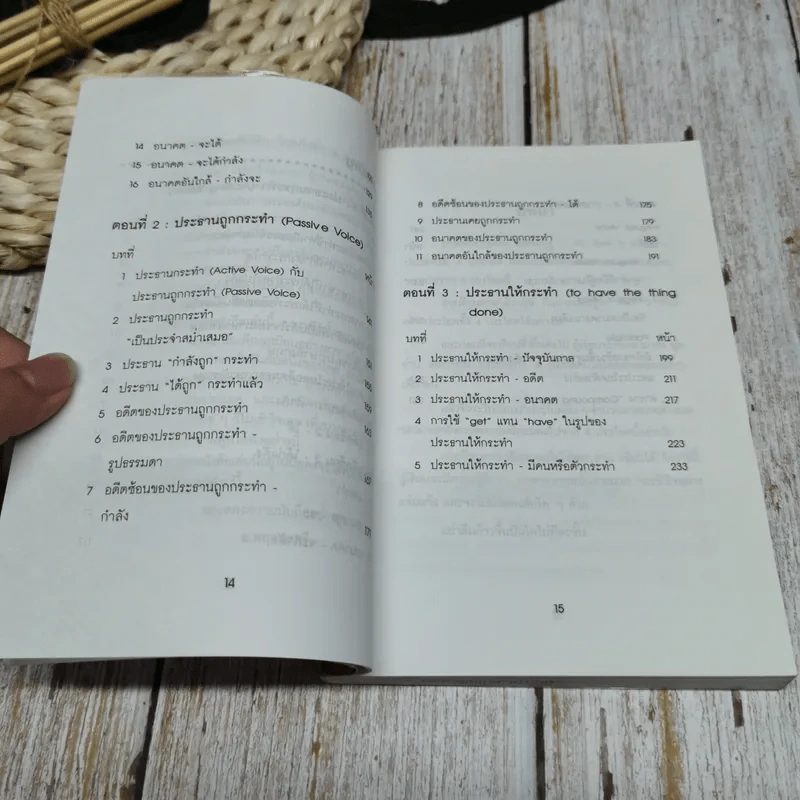 14 อนาคต - จะได้
15 อนาคต - จะได้กำลัง
16 อนาคตอันใกล้ - กำลังจะ
ตอนที่ 2 : ประธานถูกกระทำ (Passive Voice)
บทที่
1 ประธานกระทำ (Active Voice) กับ
ประธานถูกกระทำ (Passive Voice)
2 ประธานถูกกระทำ
"เป็นประจำสม่ำเสมอ"
3 ประธาน "กำลังถูก" กระทำ
4 ประธาน "ได้ถูก" กระทำแล้ว
5 อดีตของประธานถูกกระทำ
6 อดีตของประธานถูกกระทำ -
รูปธรรมดา
7 อดีตซ้อนของประธานถูกกระทำ -
กำลัง
14
8 อดีตซ้อนของประธานถูกกระทำ - ได้ 175
9 ประธานเคยถูกกระทำ 179
10 อนาคตของประธานถูกกระทำ 183
11 อนาคตอันใกล้ของประธานถูกกระทำ 191
ตอนที่ 3 : ประธานให้กระทำ (to have the thing
done)
บทที่ หน้า
1 ประธานให้กระทำ - ปัจจุบันกาล 199
2 ประธานให้กระทำ - อดีต 211
3 ประธานให้กระทำ - อนาคต 217
4 การใช้ "get" แทน "have" ในรูปของ
ประธานให้กระทำ 223
5 ประธานให้กระทำ - มีคนหรือตัวกระทำ 233
15